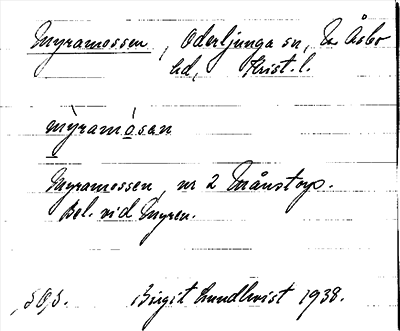 Myramossen, Oderljunga sn, N Åsbo
hd, Krist. l.
mỳramósan
Myramossen, nr 2 Månstorp.
Bel. vid Myren.
Birgit Lundkvist 1938.